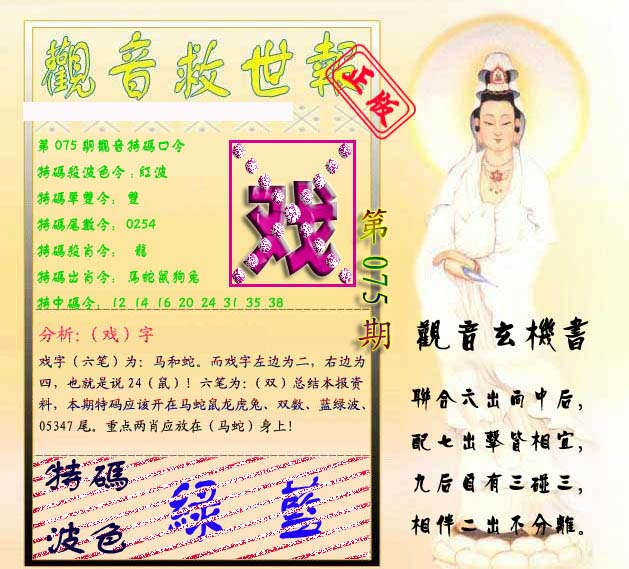 觀音救世報
正版
第075期觀音特碼口令
特碼殺波色令:紅波
特碼單雙令: 雙
特碼尾數令: 0254
特碼殺肖令: 龍
特碼出肖令: 馬蛇鼠狗兔
特中碼令: 12 14 16 20 24 31 35 38
戏
第075期
分析:（戏）字
戏字（六笔）为: 马和蛇。而戏字左边为二, 右边为
四, 也就是说24（鼠）! 六笔为:（双）总结本报资
料, 本期特码应该开在马蛇鼠龙虎兔、双数、蓝绿波、
05347尾。重点两肖应放在（马蛇）身上!
特碼
波色
綠 藍
觀音玄機書
聯合六出而中后,
配七出擊皆相宜,
九后目有三碰三,
相伴二出不分離。